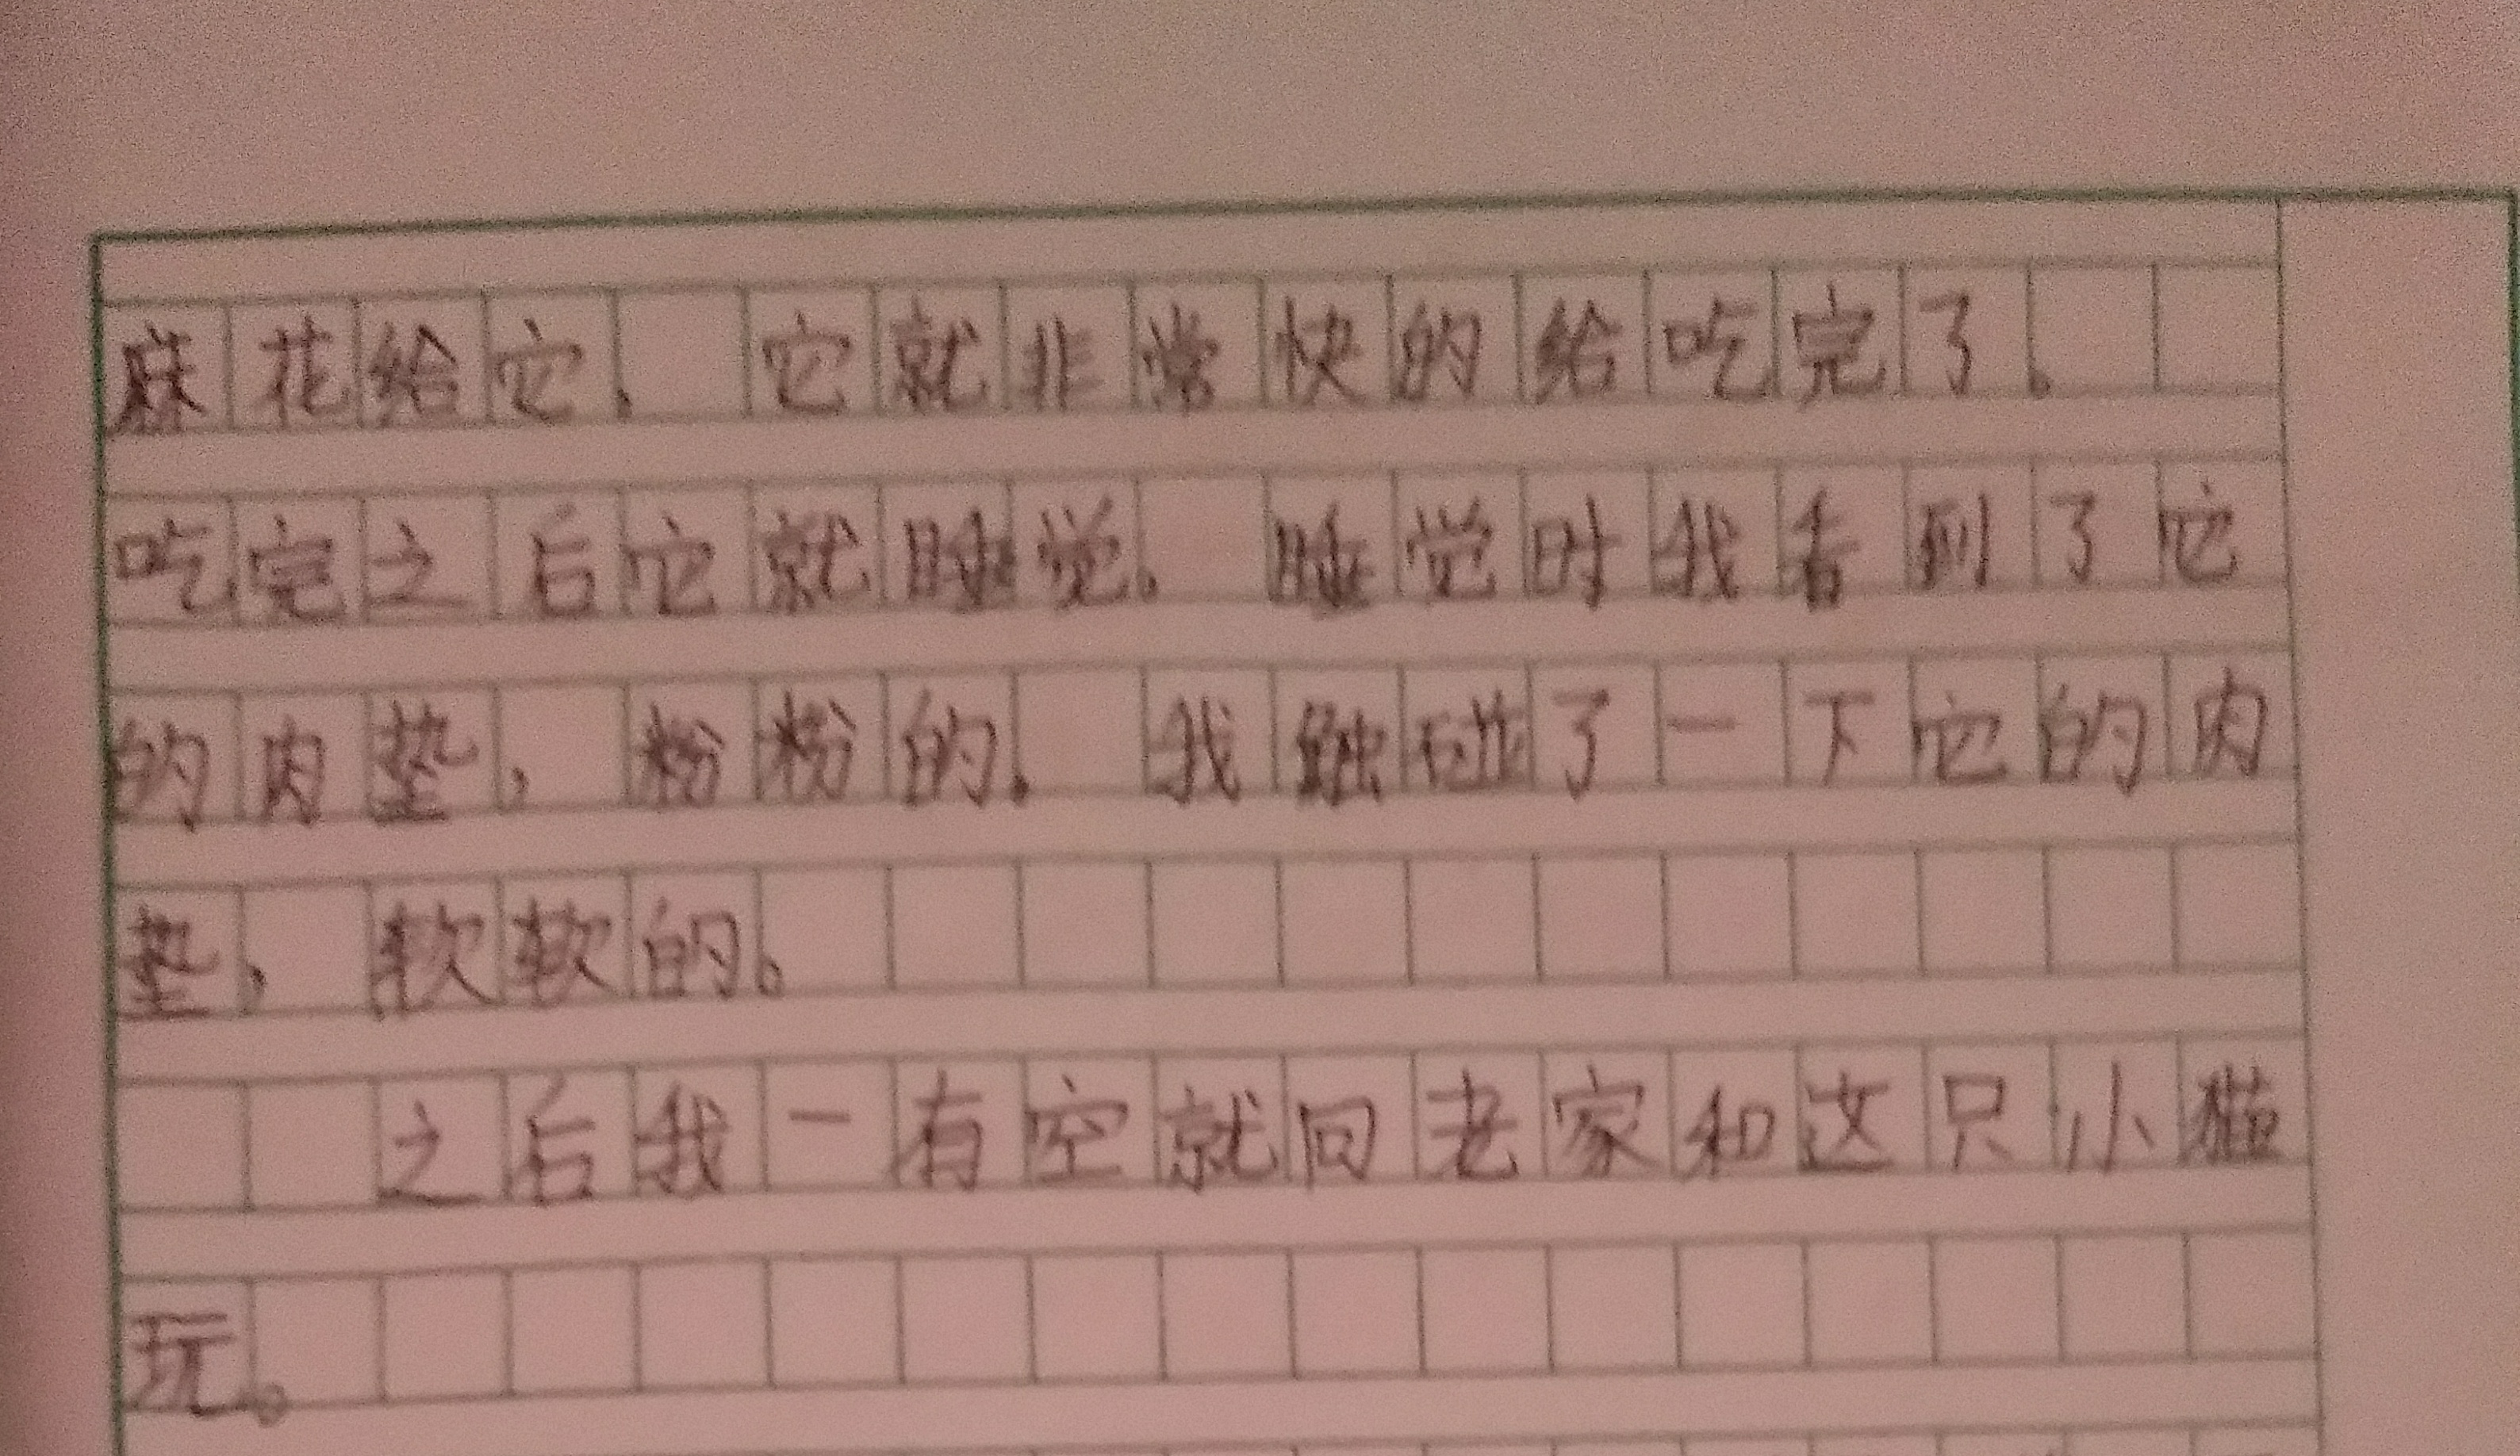 麻花给它，它就非常快的给吃完了。
吃完之后它就睡觉。睡觉时我看到了它
的肉垫，粉粉的。我触碰了一下它的肉
垫，软软的。
之后我一有空就回老家和这只小猫
玩。